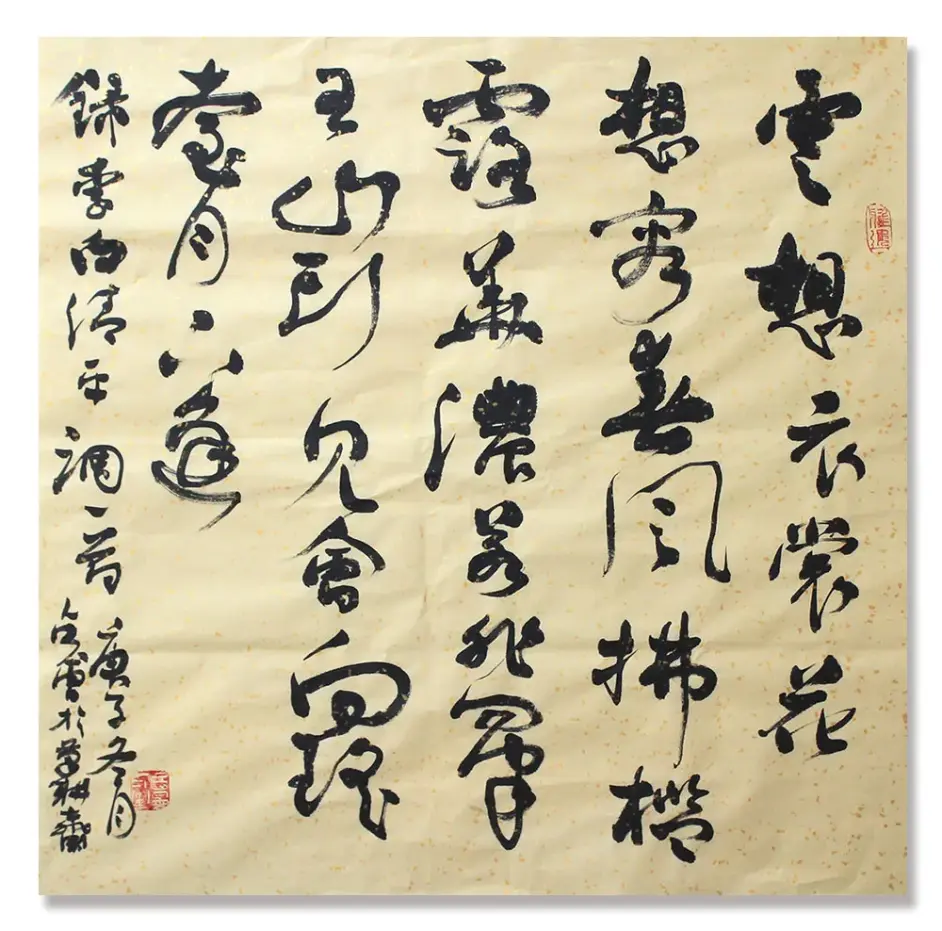 雲想衣裳花
想容春風拂檻
露華濃若非羣
玉山頭見會向瑤
臺月下逢
錄李白清平調一首
庚子冬月
雲於耕齋